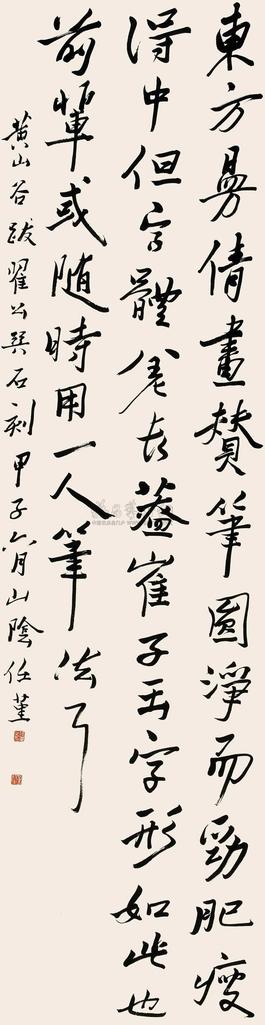 東方曼倩畫賛筆圓淨而勁肥瘦
得中但字體差長蓋崔子玉字形如此也
前輩或随時用一人筆法耳
黄山谷跋翟公巽石刻甲子六月山陰任堇